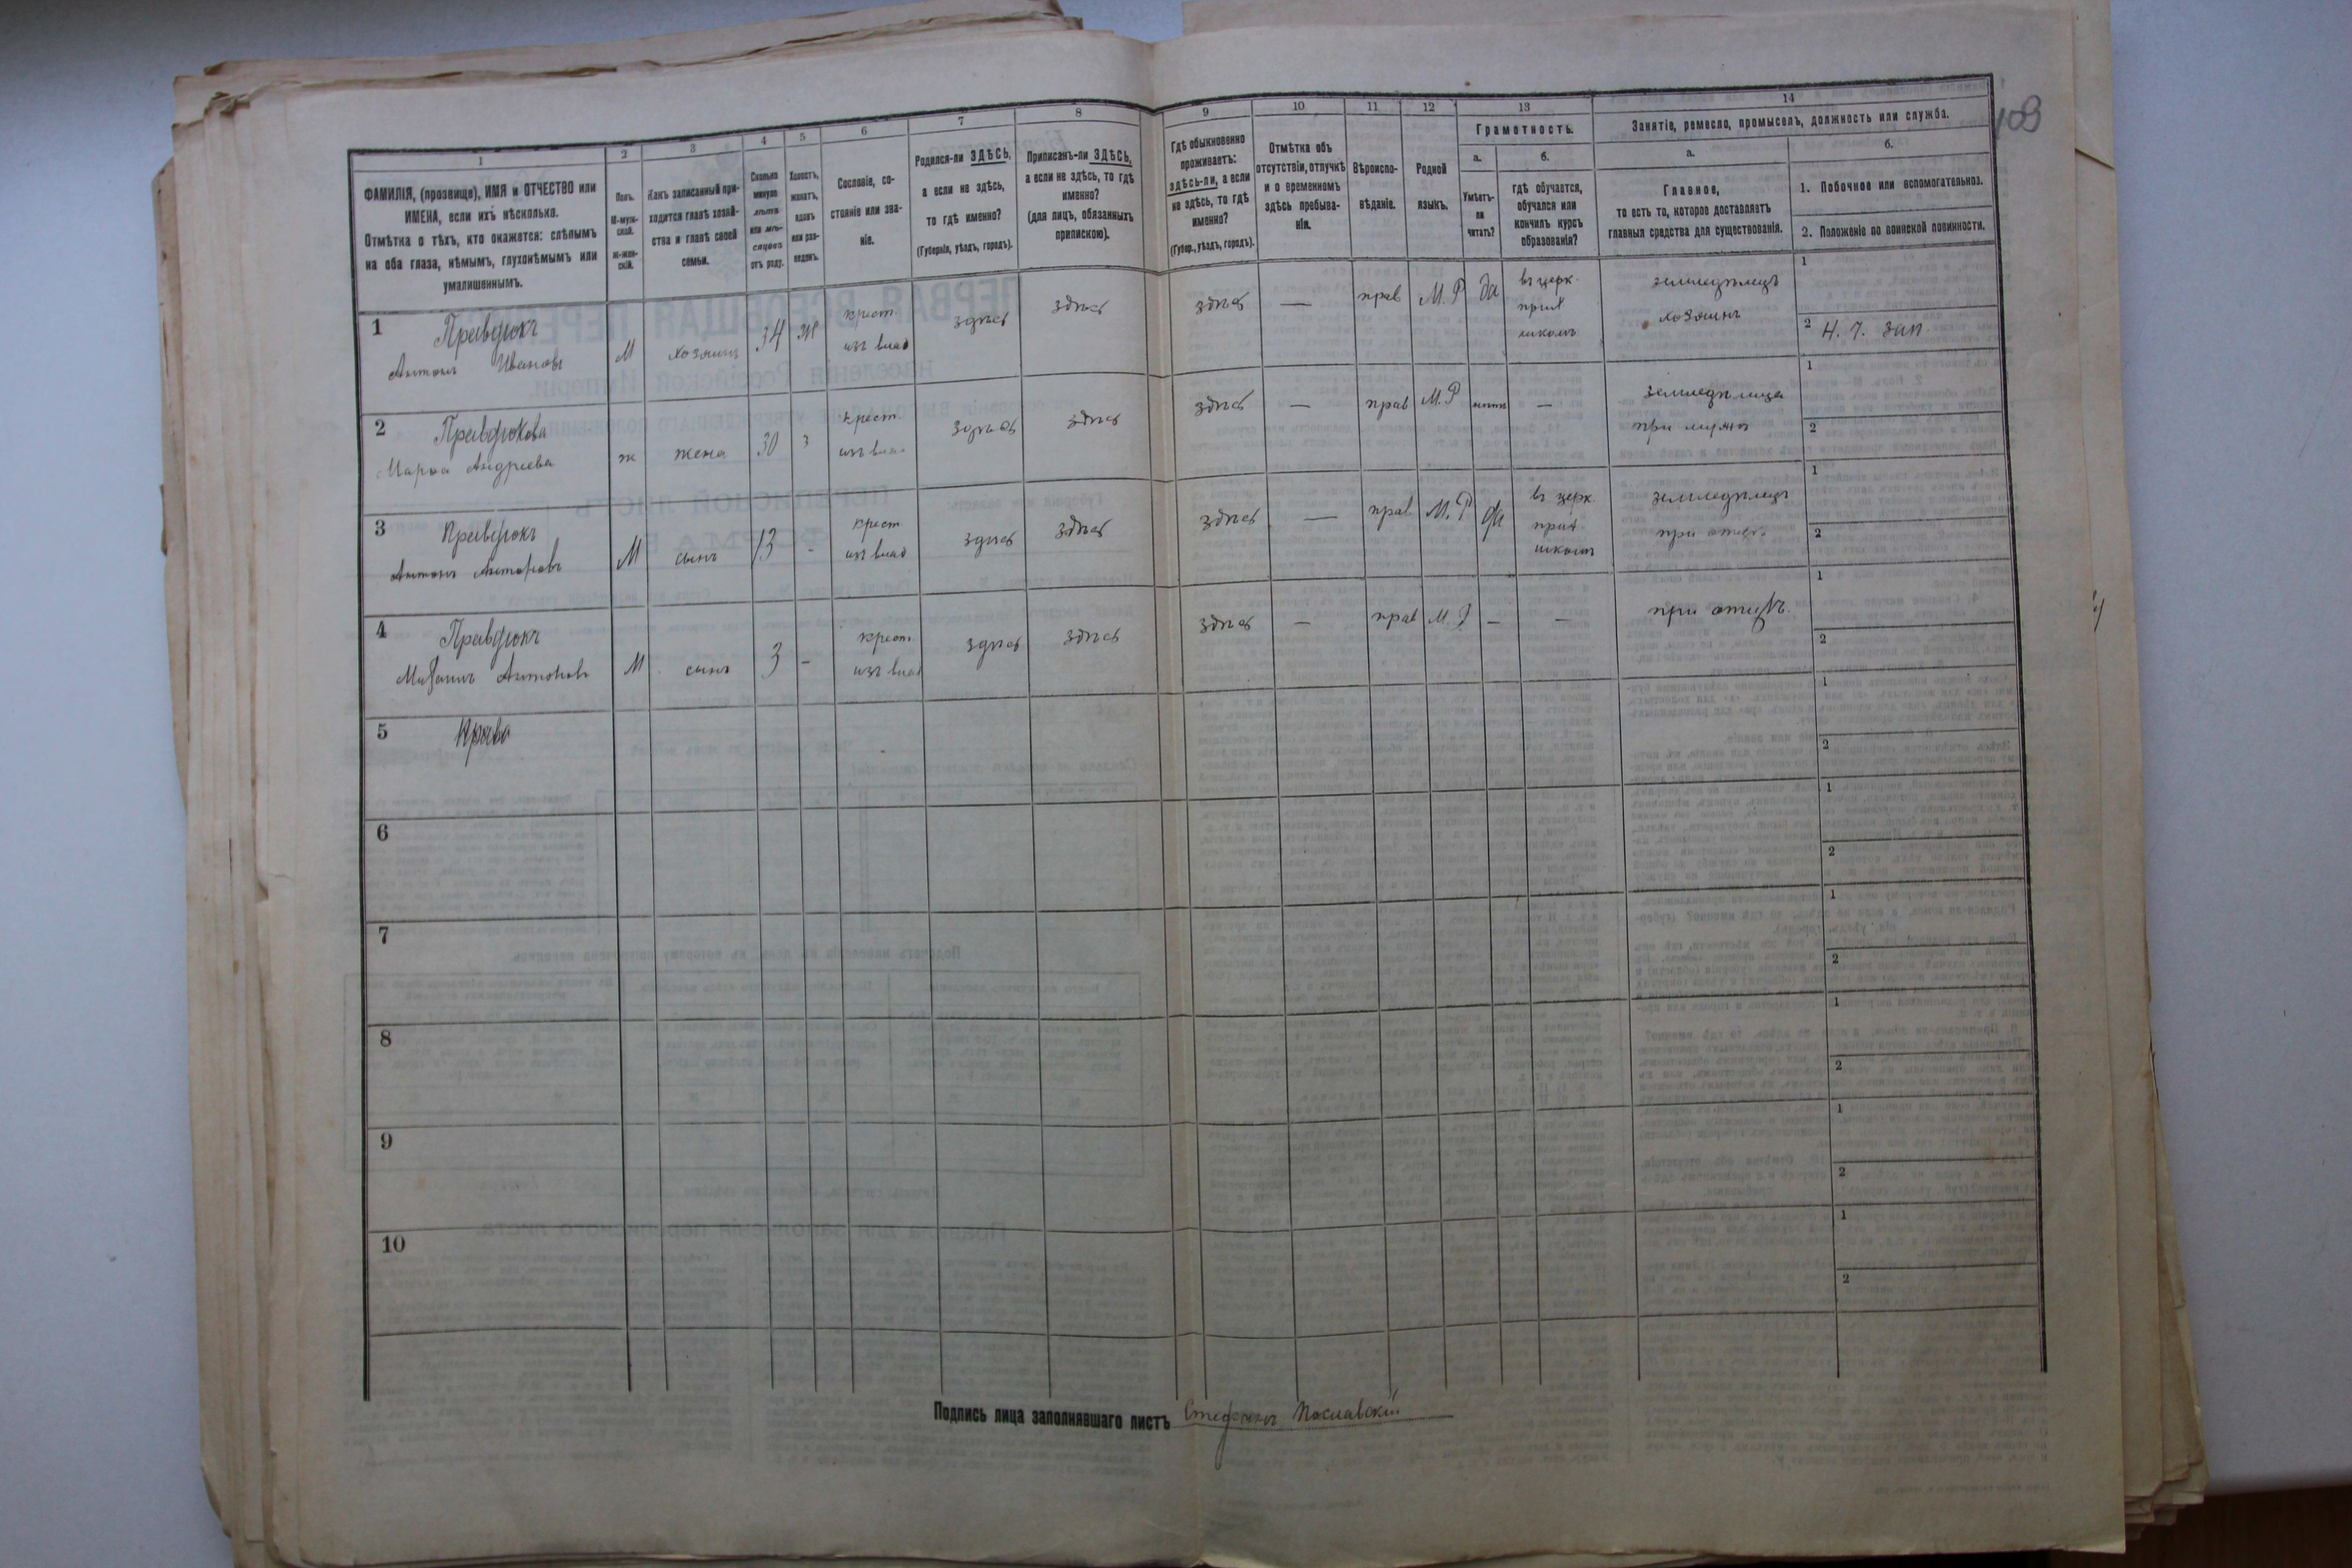 103
1
2
3
4
5
6
7
8
9
10
11
12
13
14
ФАМИЛІЯ, (прозвище), ИМЯ и ОТЧЕСТВО или
ИМЕНА, если ихъ нѣсколько.
Отмѣтка о тѣхъ, кто окажется: слѣпымъ
на оба глаза, нѣмымъ, глухонѣмымъ или
умалишеннымъ.
Полъ.
М-муж-
ской.
Ж-жен-
скій.
Какъ записанный при-
ходится главѣ хозяй-
ства и главѣ своей
семьи.
Сколько
минуло
лѣтъ
или мѣ-
сяцевъ
отъ роду.
Холостъ,
женатъ,
вдовъ
или раз-
веденъ.
Сословіе, со-
стояніе или зва-
ніе.
Родился-ли ЗДѢСЬ,
а если не здѣсь,
то гдѣ именно?
(Губернія, уѣздъ, городъ).
Приписанъ-ли ЗДѢСЬ,
а если не здѣсь, то гдѣ
именно?
(для лицъ, обязанныхъ
припискою).
Гдѣ обыкновенно
проживаетъ:
здѣсь-ли, а если
не здѣсь, то гдѣ
именно?
(Губер., уѣздъ, городъ).
Отмѣтка объ
отсутствіи, отлучкѣ
и о временномъ
здѣсь пребыва-
ніи.
Вѣроиспо-
вѣданіе.
Родной
языкъ.
Грамотность.
а.
Умѣетъ-
ли
читать?
б.
гдѣ обучается,
обучался или
кончилъ курсъ
образованія?
Занятіе, ремесло, промыселъ, должность или служба.
а.
Главное,
то есть то, которое доставляетъ
главныя средства для существованія.
б.
1. Побочное или вспомогательное.
2. Положеніе по воинской повинности.
1
Антонъ Ивановъ
М хозяинъ 34 Ж крест. здѣсь здѣсь
здѣсь — прав М.Р да въ церк.
школѣ
земледѣлецъ
хозяинъ
1
2
2
Андреева
ж жена 30 з крест. здѣсь здѣсь
здѣсь — прав М.Р нѣтъ —
при мужѣ
1
2
3
Антонъ Антоновъ
М сынъ 13 - крест здѣсь здѣсь
здѣсь — прав М.Р да въ церк.
школѣ
земледѣлецъ
при отцѣ
1
2
4
Антоновъ
М сынъ 3 - крест. здѣсь здѣсь
здѣсь — прав М.Р — —
при отцѣ.
1
2
5
1
2
6
1
2
7
1
2
8
1
2
9
1
2
10
1
2
Подпись лица заполнявшаго листъ Стефанъ Пославскій